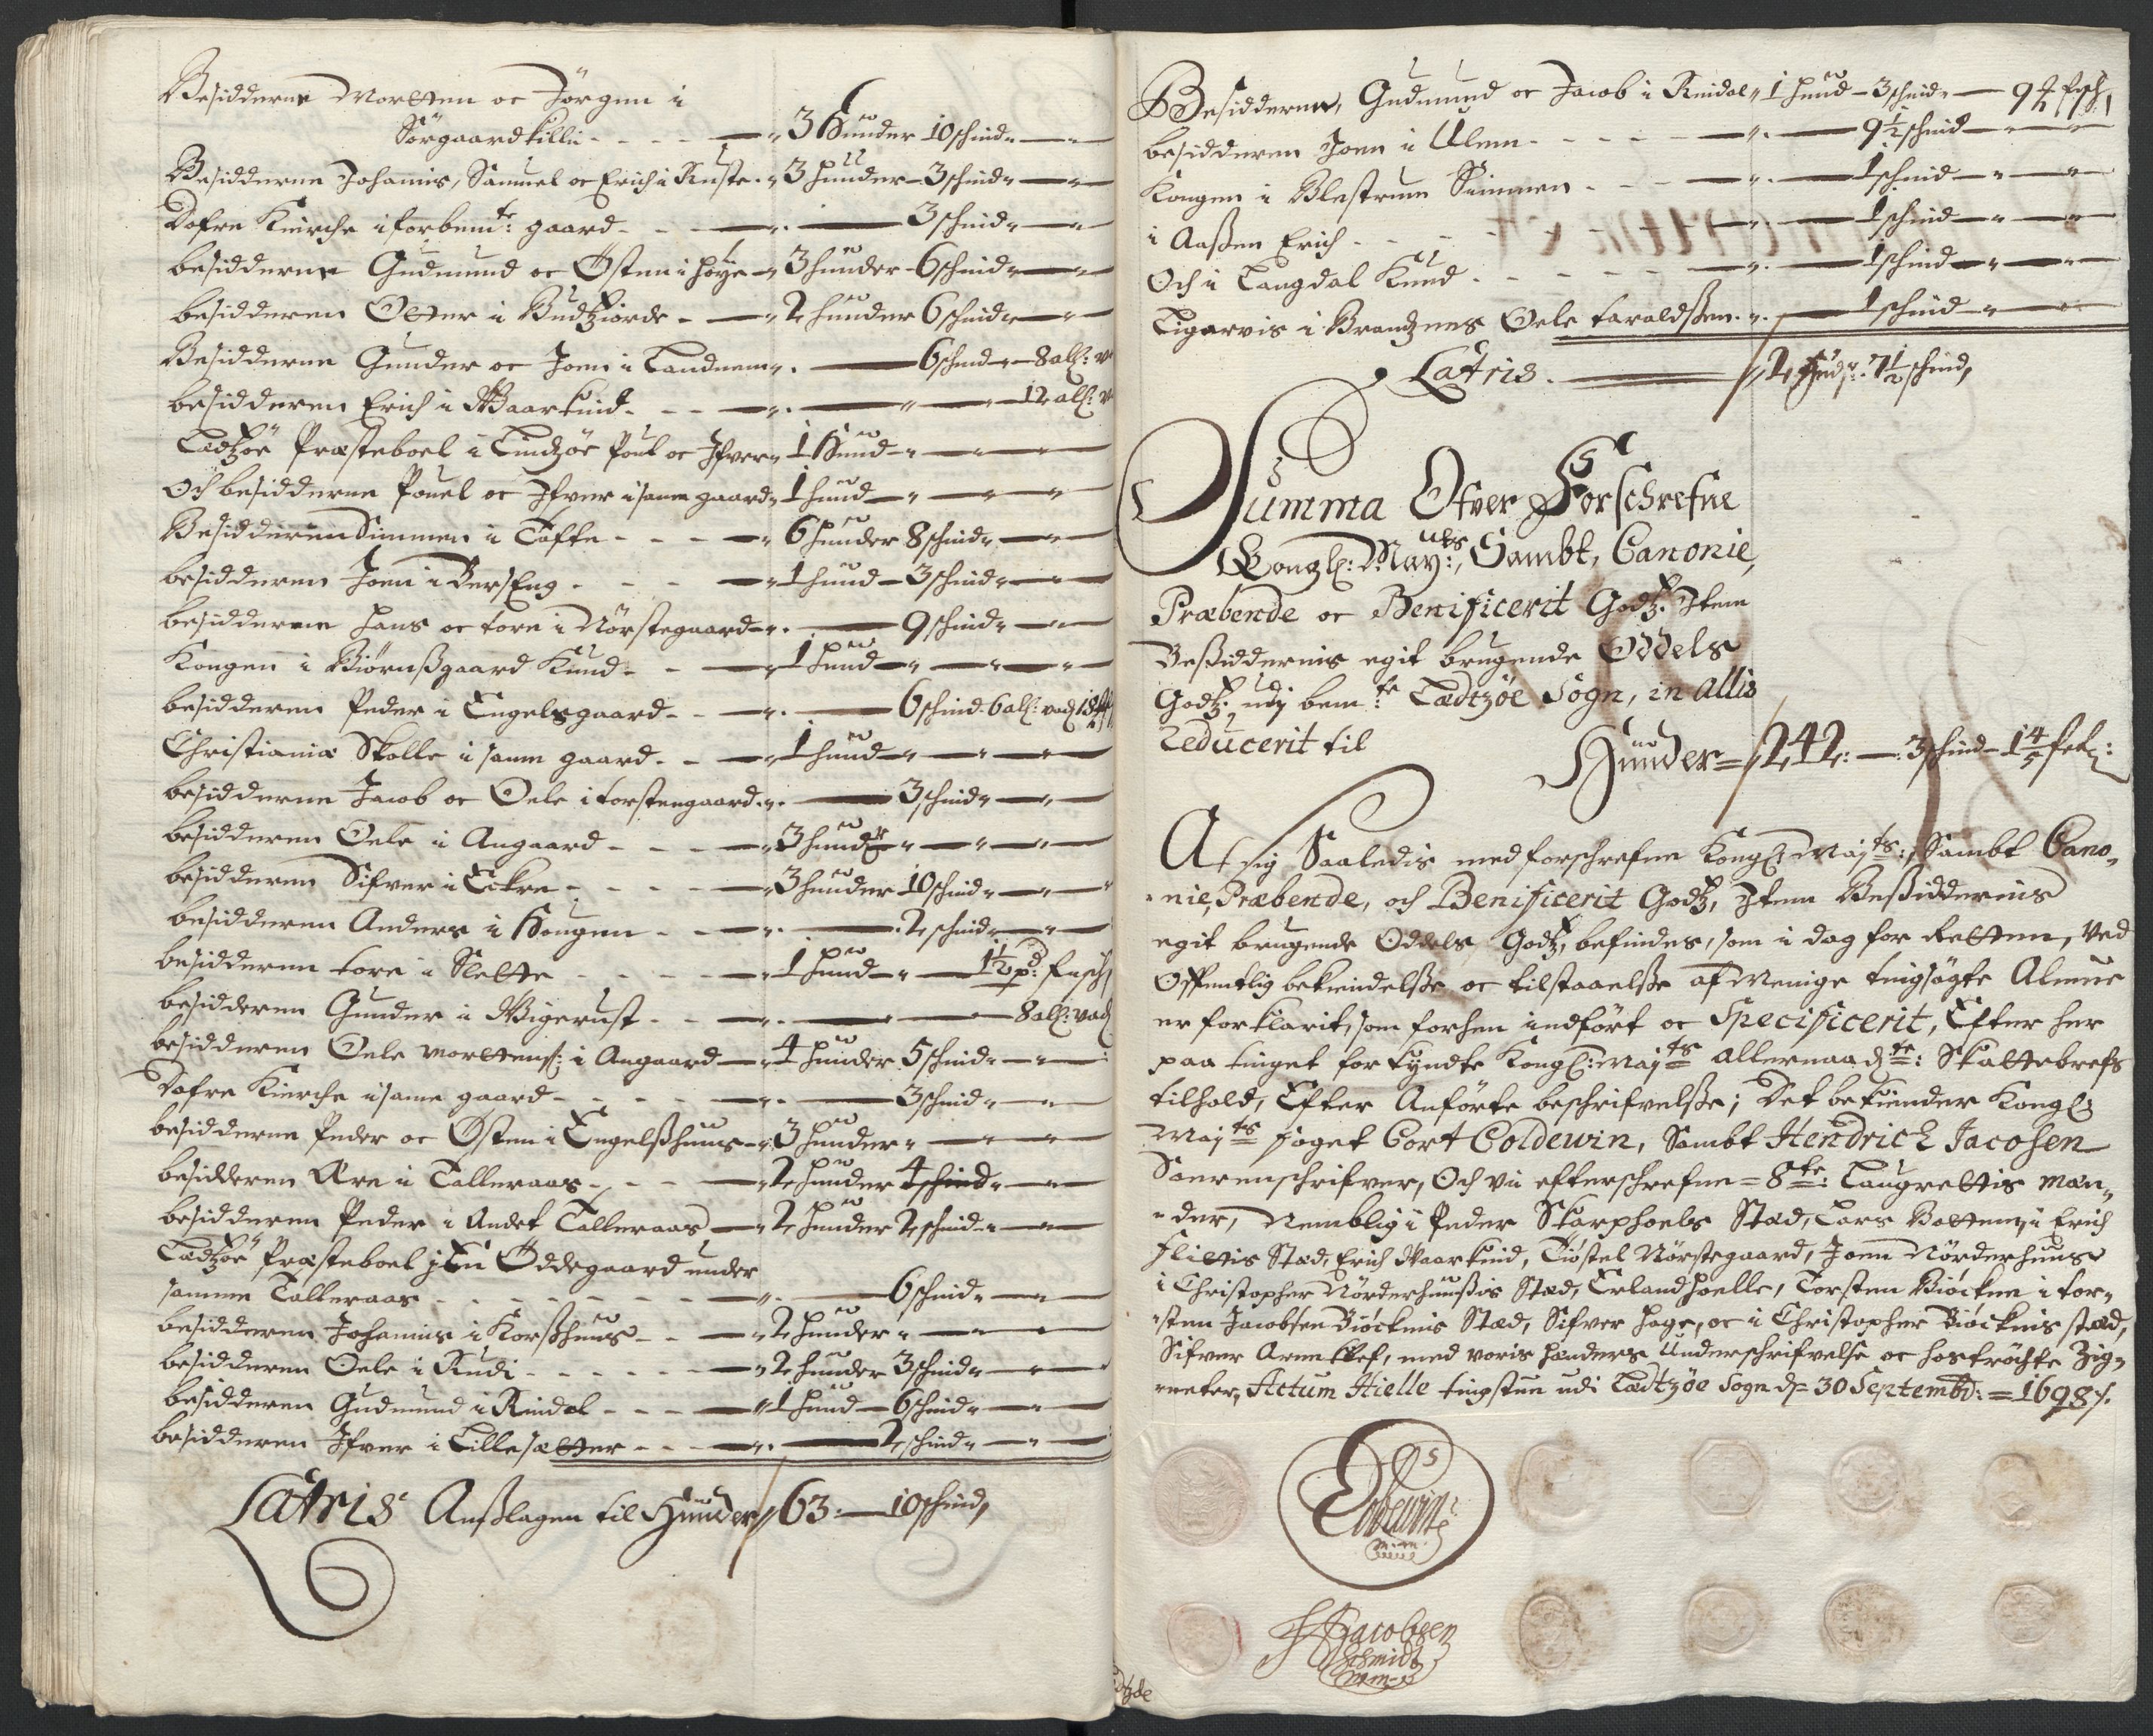 Besidderne Mortten oc Jörgen i
Sörgaard Killi - - - - 3 Hunder 10 schind
Besidderne Johannis, Samuel oc Erich i Ruste - 3 hunder - 3 schind
Dofre Kirche i forbemte: gaard - - 3 schind
besidderne Gudmund oc Østen i Høye - 3 hunder - 6 schind
besidderen Otter i Budtziorde - - 2 hunder 6 schind
Besidderne Gunder oc Joen i Landnem - 6 schind - 8 all: v
besidderen Erich i Waarkind - - - 12 all: v
Lædtzöe Præsteboel i Lindzöe Poul oc Ifver - 1 Hund
Och besidderne Pouel oc Ifver i samme gaard - 1 hund
Besidderen Simmen i Tofte - - - - 6 hunder 8 schind
besidderen Joen i BersEng - - - 1 hund - 3 schind
besidderne Hans oc Tore i Nörstegaard - 9 schind
Kongen i Biörnßgaard Knud - - 1 hund
besidderen Peder i Engelsgaard - - 6 schind - 6 all: vad
Christianiæ Skolle i samme gaard - - 1 hund
besidderne Jacob oc Oele i Torstengaard - 3 schind
besidderen Oele i Angaard - - - 3 hunder
besidderen Sifver i Eckre - - - - 3 hunder 10 schind
besidderen Anders i Hougen - - 2 schind
besidderen Tore i Slette - - - - 1 hund - 1½ pd: fesch
besidderen Gunder i Wigerust - - - 8 all: vad
besidderen Oele Morttens: i Angaard - 4 hunder 5 schind
Dofre Kirche i samme gaard - - - - 3 schind
besidderne Peder oc Østen i Engelßhuus - 3 hunder
besidderen Are i Talleraas - - - 2 hunder 4 schind
besidderen Peder i Andet Talleraas - 2 hunder 2 schind
Lædtzöe Præsteboel i En Öddegaard under
samme Talleraas - - - - - - - 6 schind
besidderen Johannis i Korßhuus - - 2 hunder
besidderen Oele i Rudi - - - - - 2 hunder 3 schind
besidderen Gudmund i Rindal - - - 1 hund - 6 schind
besidderen Ifver i Lillesætter - - - 2 schind
Latris Anßlagen til Hunder 63: - 10 schind,
Besidderne, Gudmund oc Jacob i Rindal 1 hund - 3 schind
besidderen Joen i Ulem - - - - 9½ schind
Kongen i Blestrum Simmen - - - 1 schind
i Aaßen Erich - - - - - - - 1 schind
Och i Langdal Knud - - - - - 1 schind
Ligervis i Brandznes Oele Taraldßen - 1 schind
Latris - 2 hud: 7½ schind,
Summa Ofver Forschrefne
Kongl: Mayts:, Sambt, Canonie,
Præbende oc Benificerit Godtz. Item
Beßiddernis egit brugende Oddels
Godtz. udj bemte: Lædtzöe Sogn, in Allis
Reducerit til
Hunder = 242: - 3 schind - 1 4/5 fet:
At sig Saaledis med forschrefne Kongl: Majts:, Sambt Cano-
nie, Præbende, och Benificerit Godtz, Item Beßiddernis
egit brugende Oddels Godtz, befindes, som i dag for Retten, Ved
Offentlig bekiendelße oc tilstaaelße af Menige tingsögte Almue
er forklarit, som forhen indfört oc Specificerit, Efter her
paa tinget forkyndte Kongl: Majts allernaadte: Skattebrefs
tilhold, Efter Anförte beschrifvelße; Det bekiender Kongl:
Majts foget Cort Coldewin, Sambt Hendrich Jacobsen
Sorenschrifver, Och vii efterschrefne = 8te: Laugrettis Mæn-
der, Nemblig i Peder Skarphoels Stæd, Lars Bottem, i Erich
Flittis Stæd, Erich Waarkind, Tiöstel Nörstegaard, Joen Nörderhuus
i Christopher Nörderhuußis Stæd, Erland Hoelle, Torsten Biöcken i Tor-
sten Jacobsen Biöckenis Stæd, Sifver Hage, oc i Christopher Biöckenis stæd,
Sifver Arne Klef, med voris hænders Underschrifvelse oc hoströchte Zig-
neter, Actum Hielle tingstue udi Lædtzöe Sogn d= 30 Septembr: = 1698.
Coldewin
mm
HJacobsen
Schmidt
mm